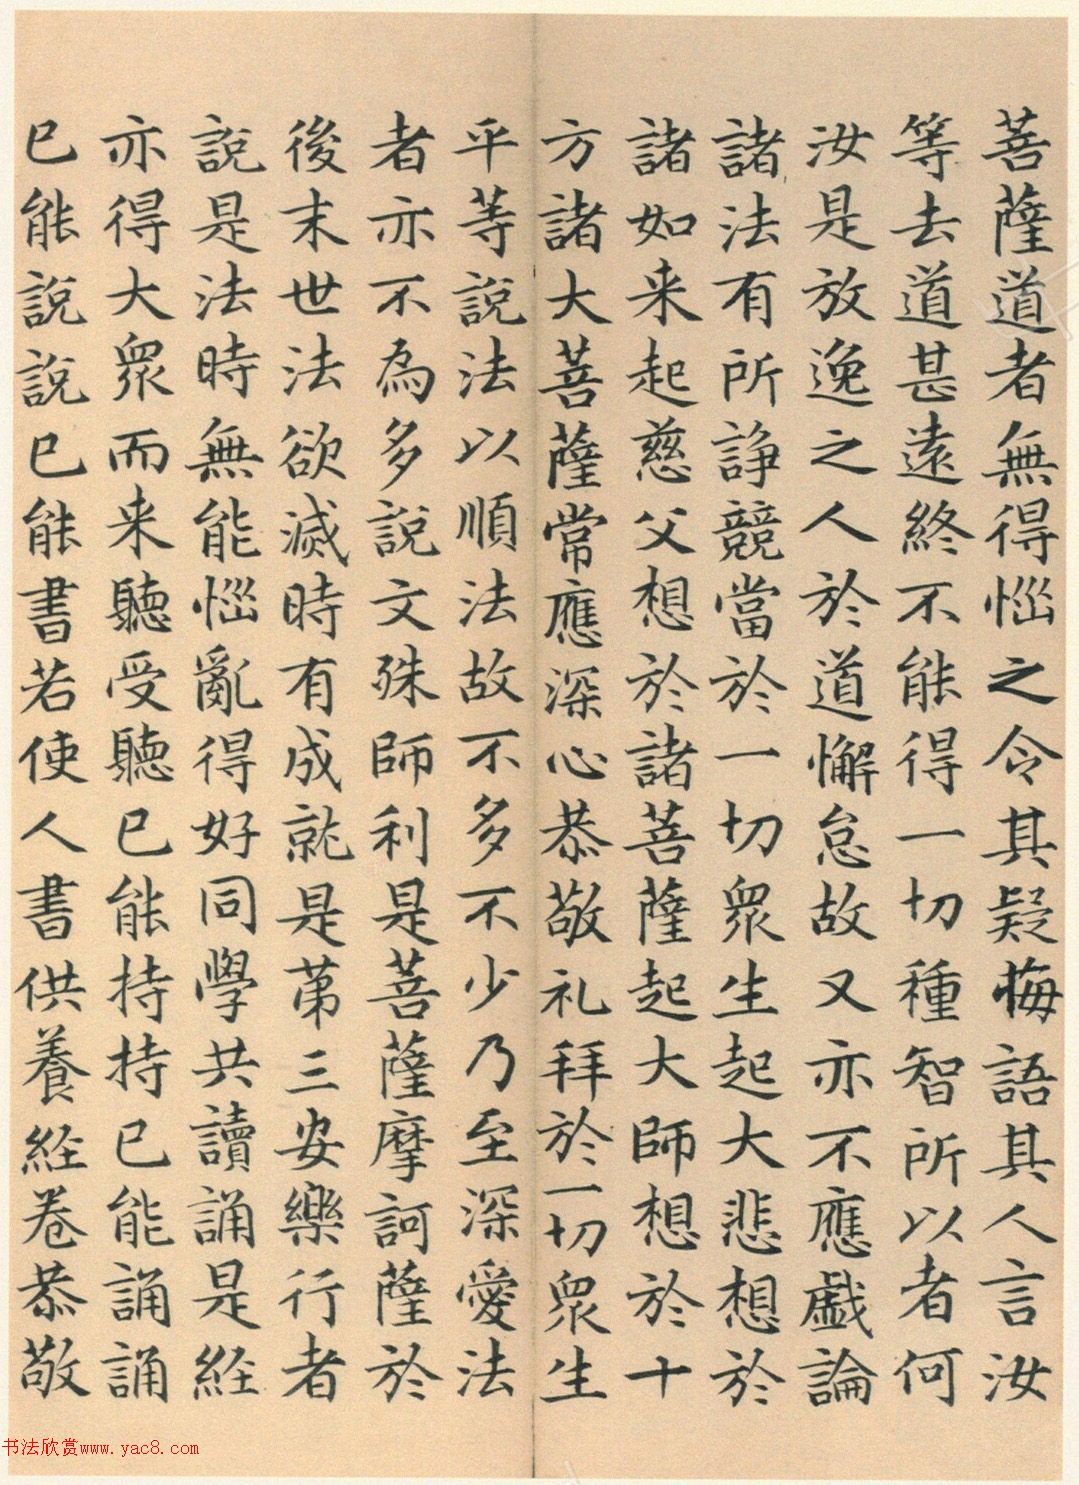 菩薩道者無得惱之令其疑悔語其人言汝
等去道甚遠終不能得一切種智所以者何
汝是放逸之人於道懈怠故又亦不應戲論
諸法有所諍競當於一切眾生起大悲想於
諸如来起慈父想於諸菩薩起大師想於十
方諸大菩薩常應深心恭敬礼拜於一切眾生
平等說法以順法故不多不少乃至深愛法
者亦不為多說文殊師利是菩薩摩訶薩於
後末世法欲滅時有成就是第三安樂行者
說是法時無能惱亂得好同學共讀誦是經
亦得大眾而来聽受聽已能持持已能誦誦
已能說說已能書若使人書供養經卷恭敬
书法欣赏www.yac8.com